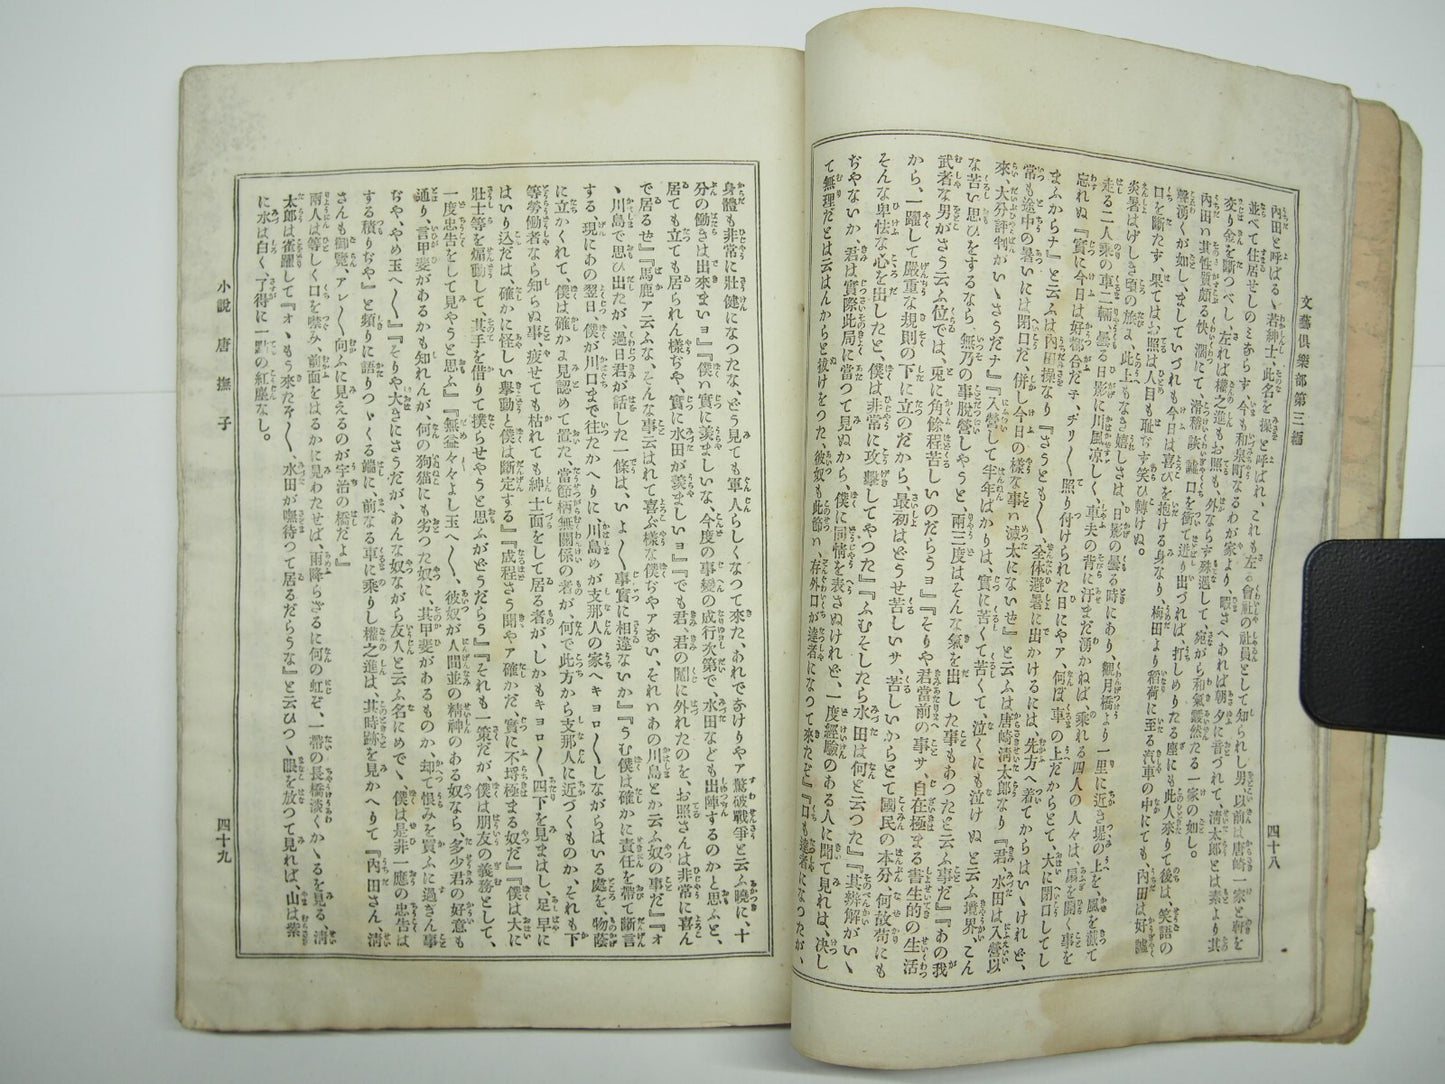 文藝倶樂部第三編
四十八
内田と呼ばるゝ若紳士、此名を操と呼ばれ、これも左る會社の社員として知られし男、以前は唐崎一家と軒を
並べて住居せしのみならず、今も和泉町なるわが家より、暇さへあれば朝夕に音づれて、清太郎とは素より其
交り金を斷つべし、左れば權之進もお照も、外ならず殊遇して、宛がら和氣靄然たる一家の如し。
内田ハ其性質頗る快濶にて、滑稽詼謔口を衝て迸り出づれば、打しめりたる座にも此人來りて後は、笑語の
聲湧くが如し、ましていづれも今日は喜びを抱ける身なり、梅田より稻荷に至る汽車の中にても、内田は好謔
口を斷たず、果てはお照は人目も耻ぢず笑ひ轉けぬ。
炎暑はげしき頃の旅よ、此上もなき嬉しさは、日影の曇る時にあり、觀月橋より一里に近き堤の上を、風を截て
走る二人乘の車二輛、曇る日影に川風凉しく、車夫の背に汗まだ湧かねば、乘れる四人の人々は、扇を開く事を
忘れぬ『實に今日は好都合だ子、ヂリ〱照り付けられた日にやア、何ぼ車の上だからとて、大に閉口してし
まふからナ』と云ふは内田操なり『さうとも〱、全体避暑に出かけるには、先方へ着てからはいゝけれど、
常も途中の暑いには閉口だ、併し今日の樣な事ハ滅太にないぜ』と云ふは唐崎清太郎なり『君、水田は入營以
來、大分評判がいゝさうだナ』『入營して半年ばかりは、實に苦くて苦くて、泣くにも泣けぬと云ふ境界、こん
な苦い思ひをするなら、無乃の事脱營しやうと、兩三度はそんな氣を出した事もあつたと云ふ事だ』『あの我
武者な男がさう云ふ位では、兎に角餘程苦しいのだらうヨ』『そりや君當前の事サ、自在極まる書生的の生活
から、一躍して嚴重な規則の下に立のだから、最初はどうせ苦しいサ、苦しいからとて國民の本分、何故苟にも
そんな卑怯な心を出したと、僕は非常に攻撃してやつた』『ふむそしたら水田は何と云つた』『其辨解がいゝ
ぢやないか、君は實際此局に當つて見ぬから、僕に同情を表さぬけれど、一度經驗のある人に聞て見れは、決し
て無理だとは云はんからと拔けをつた、彼奴も此節ハ、存外口が達者になつて來たぞ』『口も達者になつたが、
身體も非常に壯健になつたな、どう見ても軍人らしくなつて來た、あれでさけりやア驚破戰爭と云ふ曉に、十
分の働きは出來まいョ』『僕ハ實に羨ましいな、今度の事變の成行次第で、水田なども出陣するのかと思ふと、
居ても立ても居られん樣ぢや、實に水田が羨ましいョ』『でも君、君の鬮に外れたのを、お照さんは非常に喜ん
で居るせ』『馬鹿ア云ふな、そんな事云はれて喜ぶ樣な僕ぢやアない、それハあの川島とか云ふ奴の事だ』『ォ
ヽ川島で思ひ出たが、過日君が話した一條は、いよ〱事實に相違ないか』『うむ僕は確かに責任を帶て斷言
する、現にあの翌日、僕が川口まで往たかへりに、川島めが支那人の家へキヨロ〱しながらはいる處を、物蔭
に立かくれて、僕は確かよ見認めて置た、當節柄無關係の者が、何で此方から支那人に近づくものか、それも下
等勞働者なら知らぬ事、疲せても枯れても紳士面をして居る者が、しかもキヨロ〱四下を見まはし、足早に
はいり込だは、確かに怪しい擧動と僕は斷定する』『成程さう聞やア確かだ、實に不埒極まる奴だ』『僕は大に
壯士等を煽動して、其手を借りて撲らせやうと思ふがどうだらう』『それも一策だが、僕は朋友の義務として、
一度忠告をして見やうと思ふ』『無益々々よし玉へ〱、彼奴が人間並の精神のある奴なら、多少君の好意も
通り、言甲斐があるかも知れんが、何の狗猫にも劣つた奴に、其甲斐があるものか、却て恨みを買ふに過ぎん事
ぢや、やめ玉へ〱』『そりや大きにさうだが、あんな奴ながら友人と云ふ名にめでゝ、僕は是非一應の忠告は
する積りぢや』と頻りに語りつゞくる端に、前なる車に乘りし權之進は、其時跡を見かへりて『内田さん、清
さんも御覽、アレ〱向ふに見えるのが宇治の橋だよ』
兩人は等しく口を噤み、前面をはるかに見わたせば、雨降らざるに何の虹ぞ、一帶の長橋淡くかゝるを見る、清
太郎は雀躍して『オヽもう來たネ〱、水田が嘸待つて居るだらうな』と云ひつゝ眼を放つて見れば、山は紫
に水は白く、了得に一點の紅塵なし。
小説　唐撫子
四十九